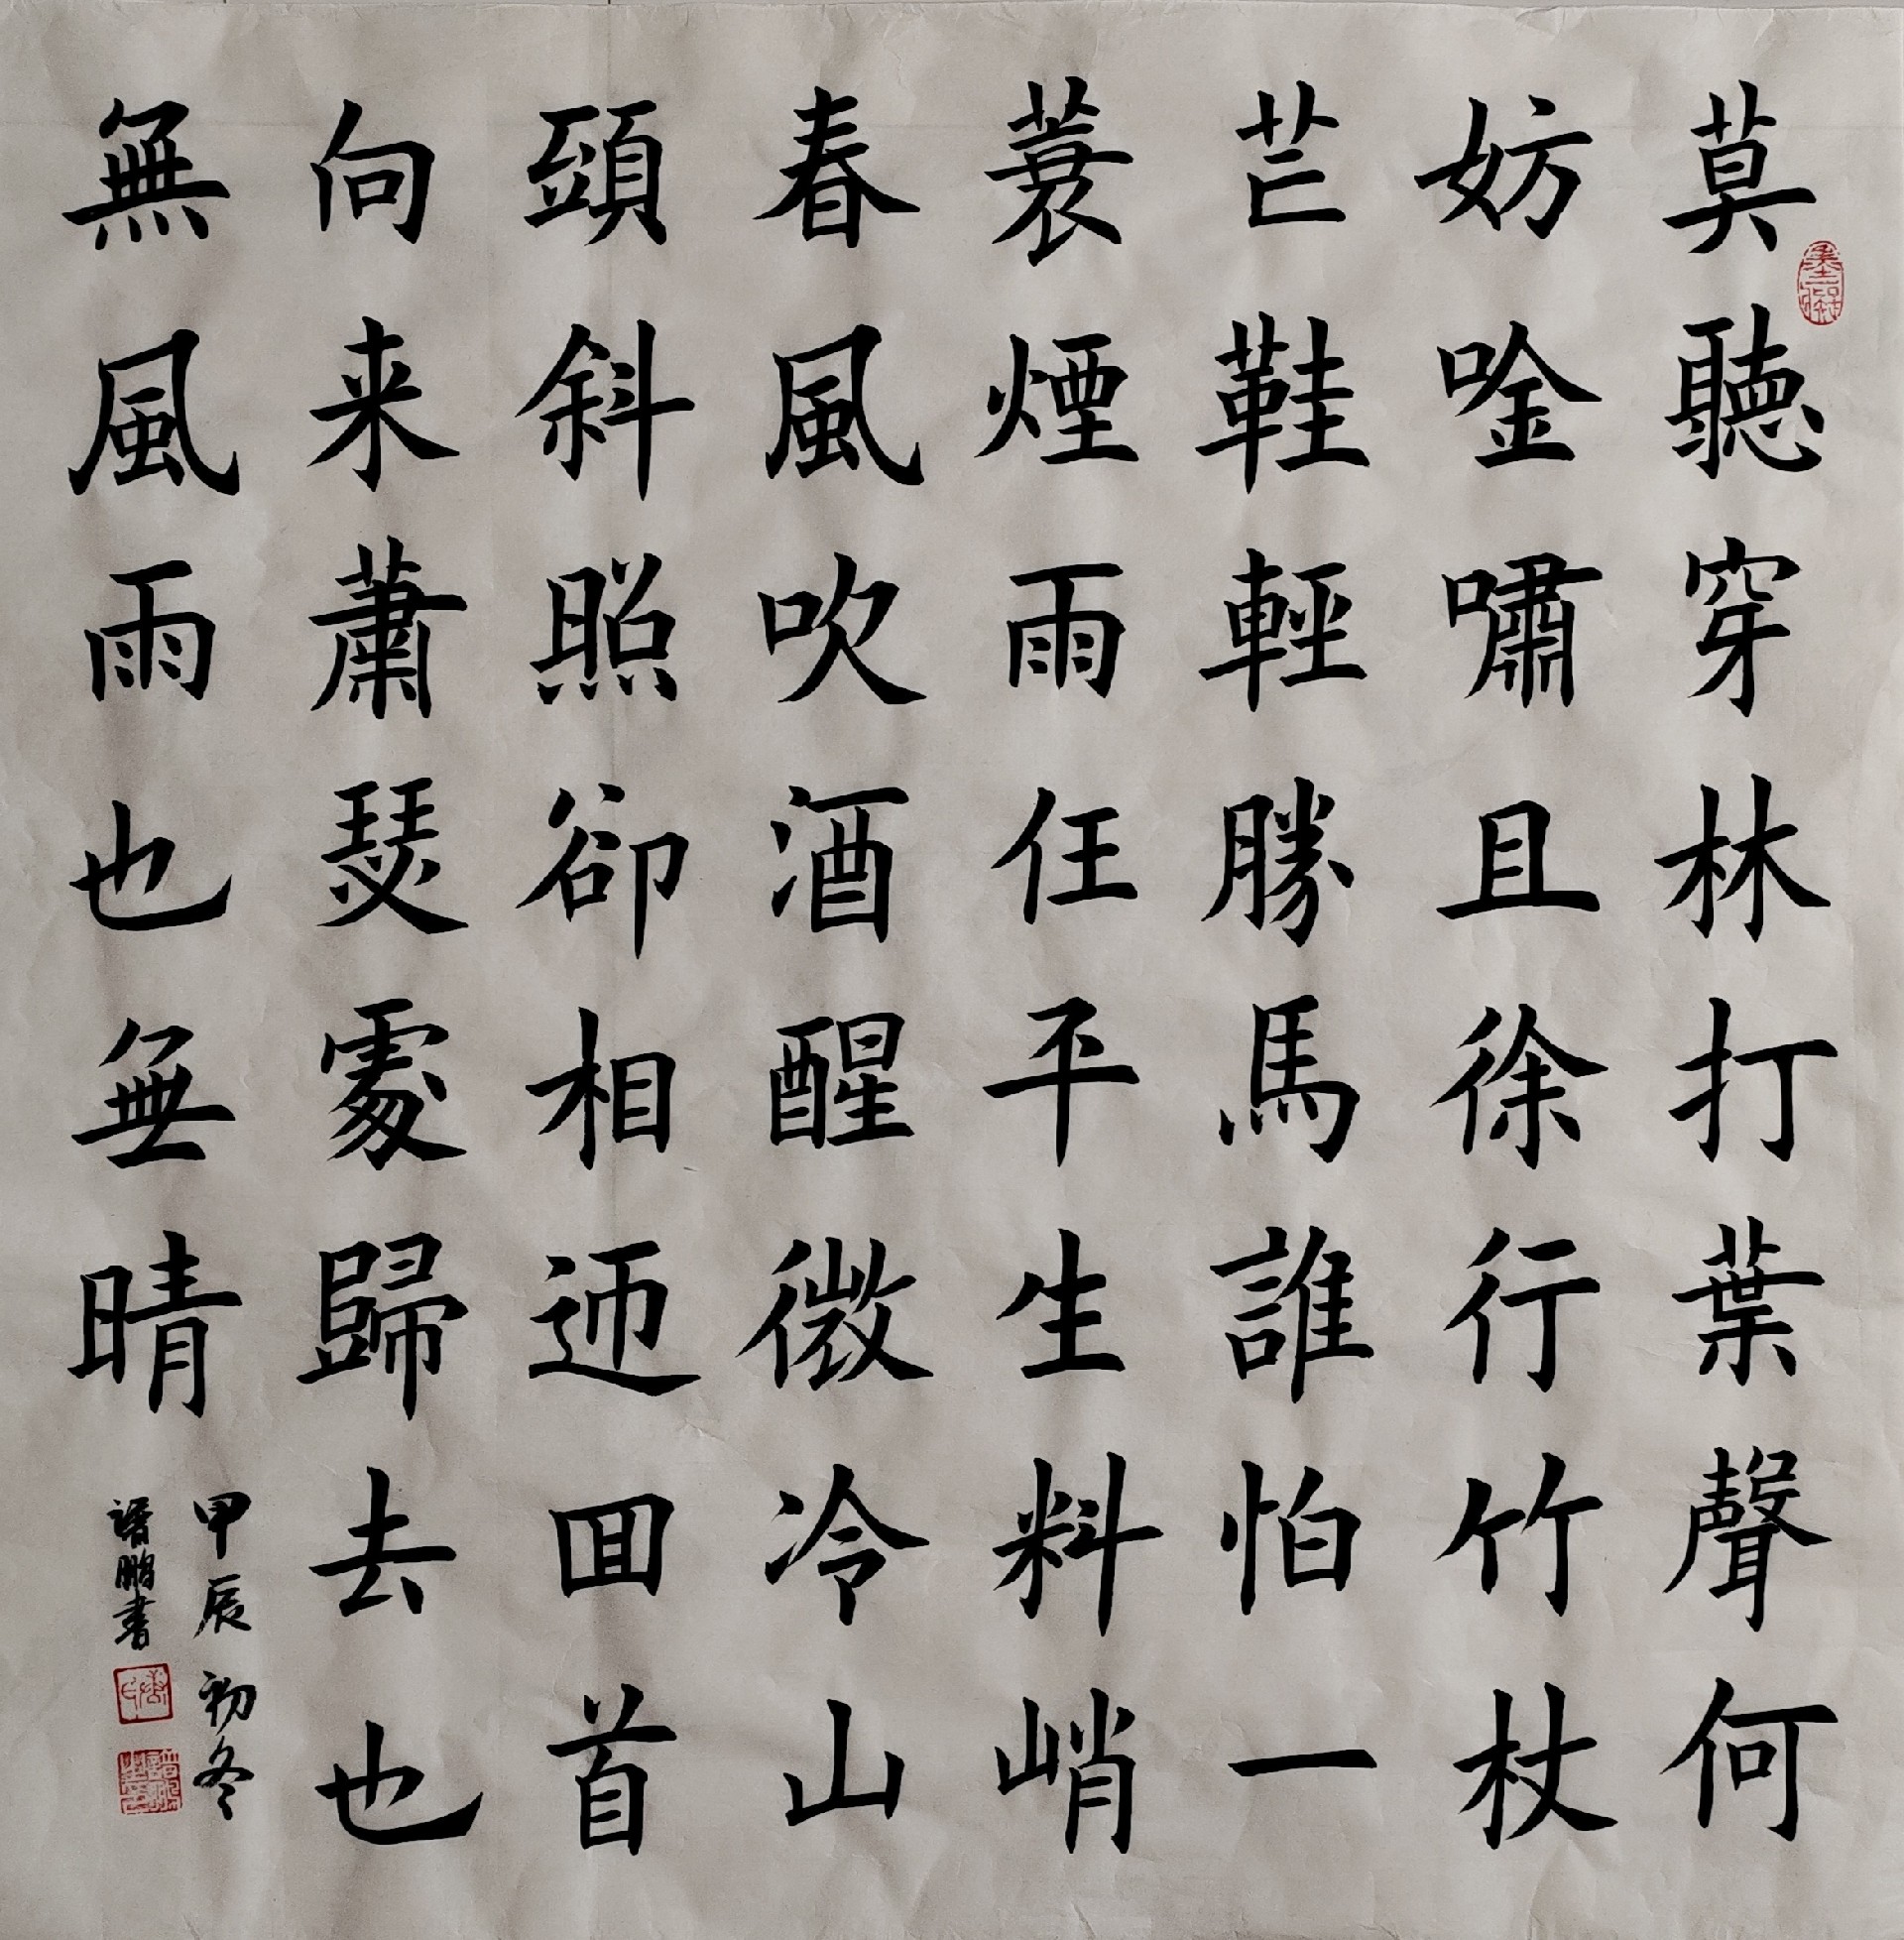 莫聽穿林打葉聲何
妨唫嘯且徐行竹杖
芒鞋輕勝馬誰怕一
蓑煙雨任平生料峭
春風吹酒醒微冷山
頭斜照卻相迊回首
向来蕭瑟處歸去也
無風雨也無晴
甲辰初冬
鵬書